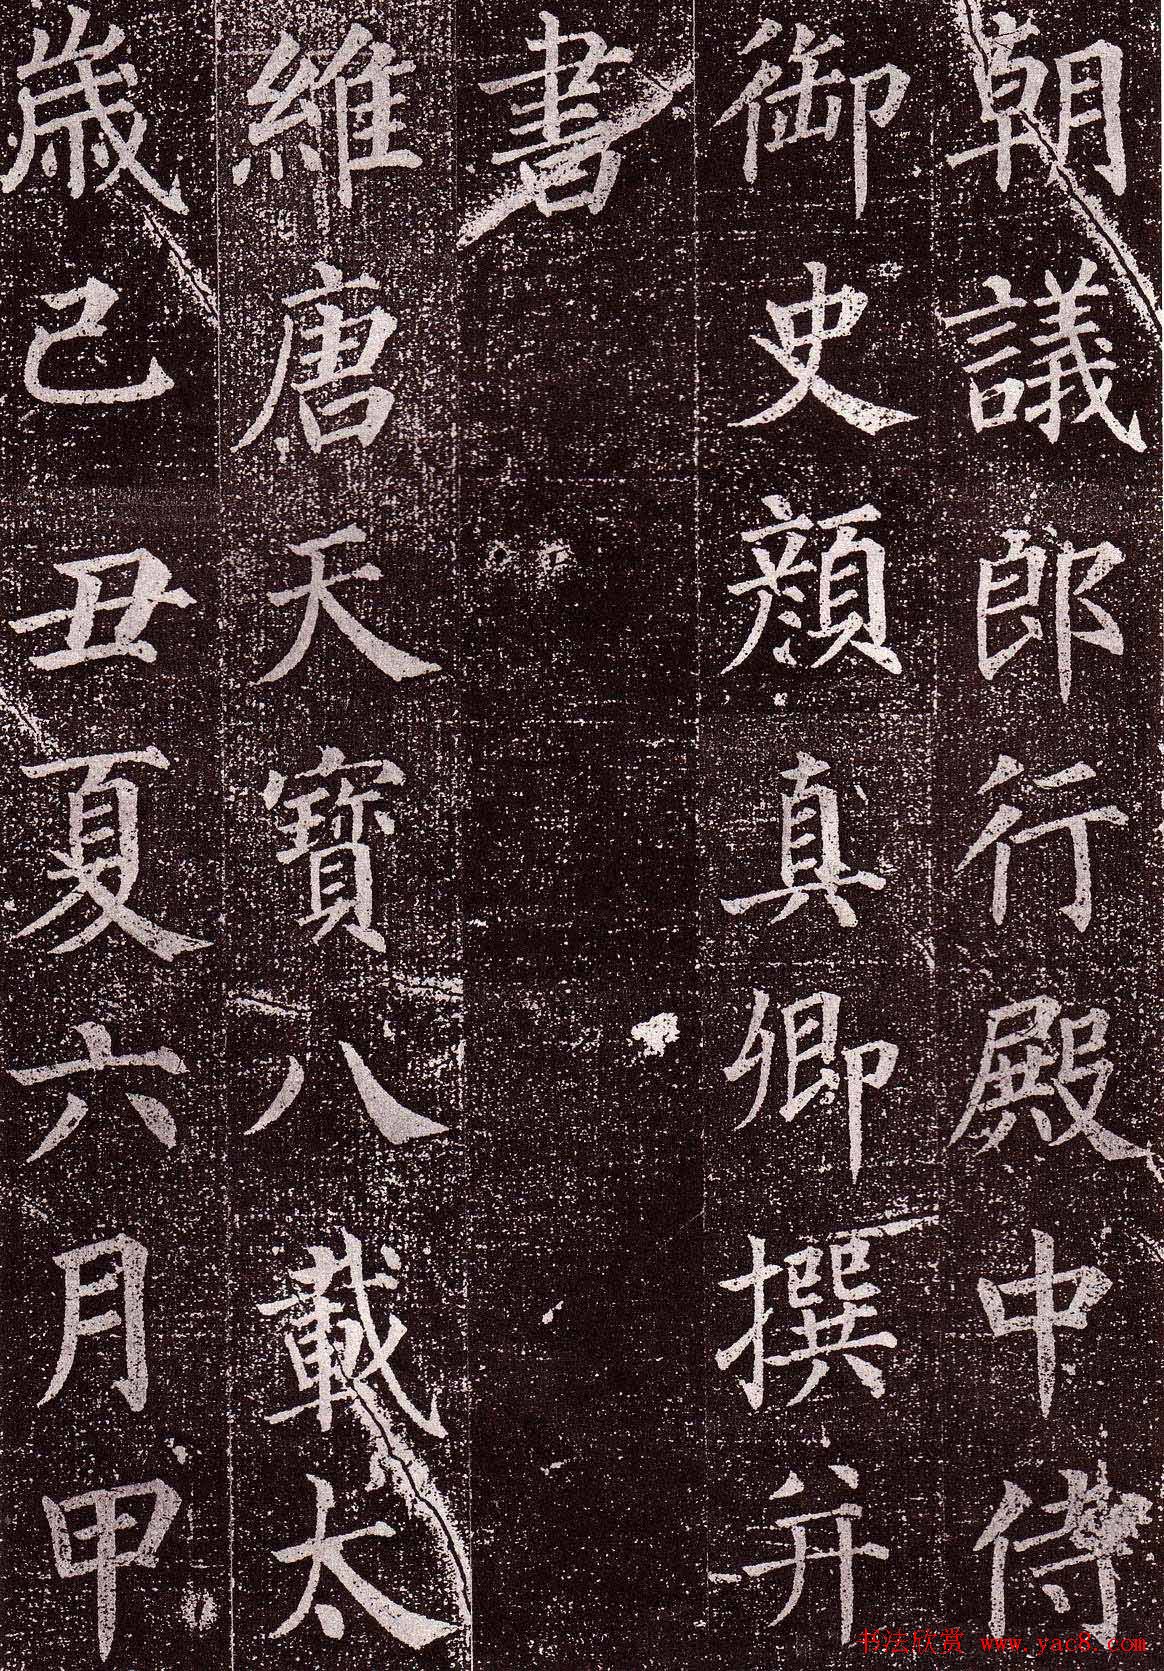 朝議郎行殿中侍
御史顏真卿撰并
書
維唐天寶八載太
歲己丑夏六月甲
书法欣赏 www.yac8.com